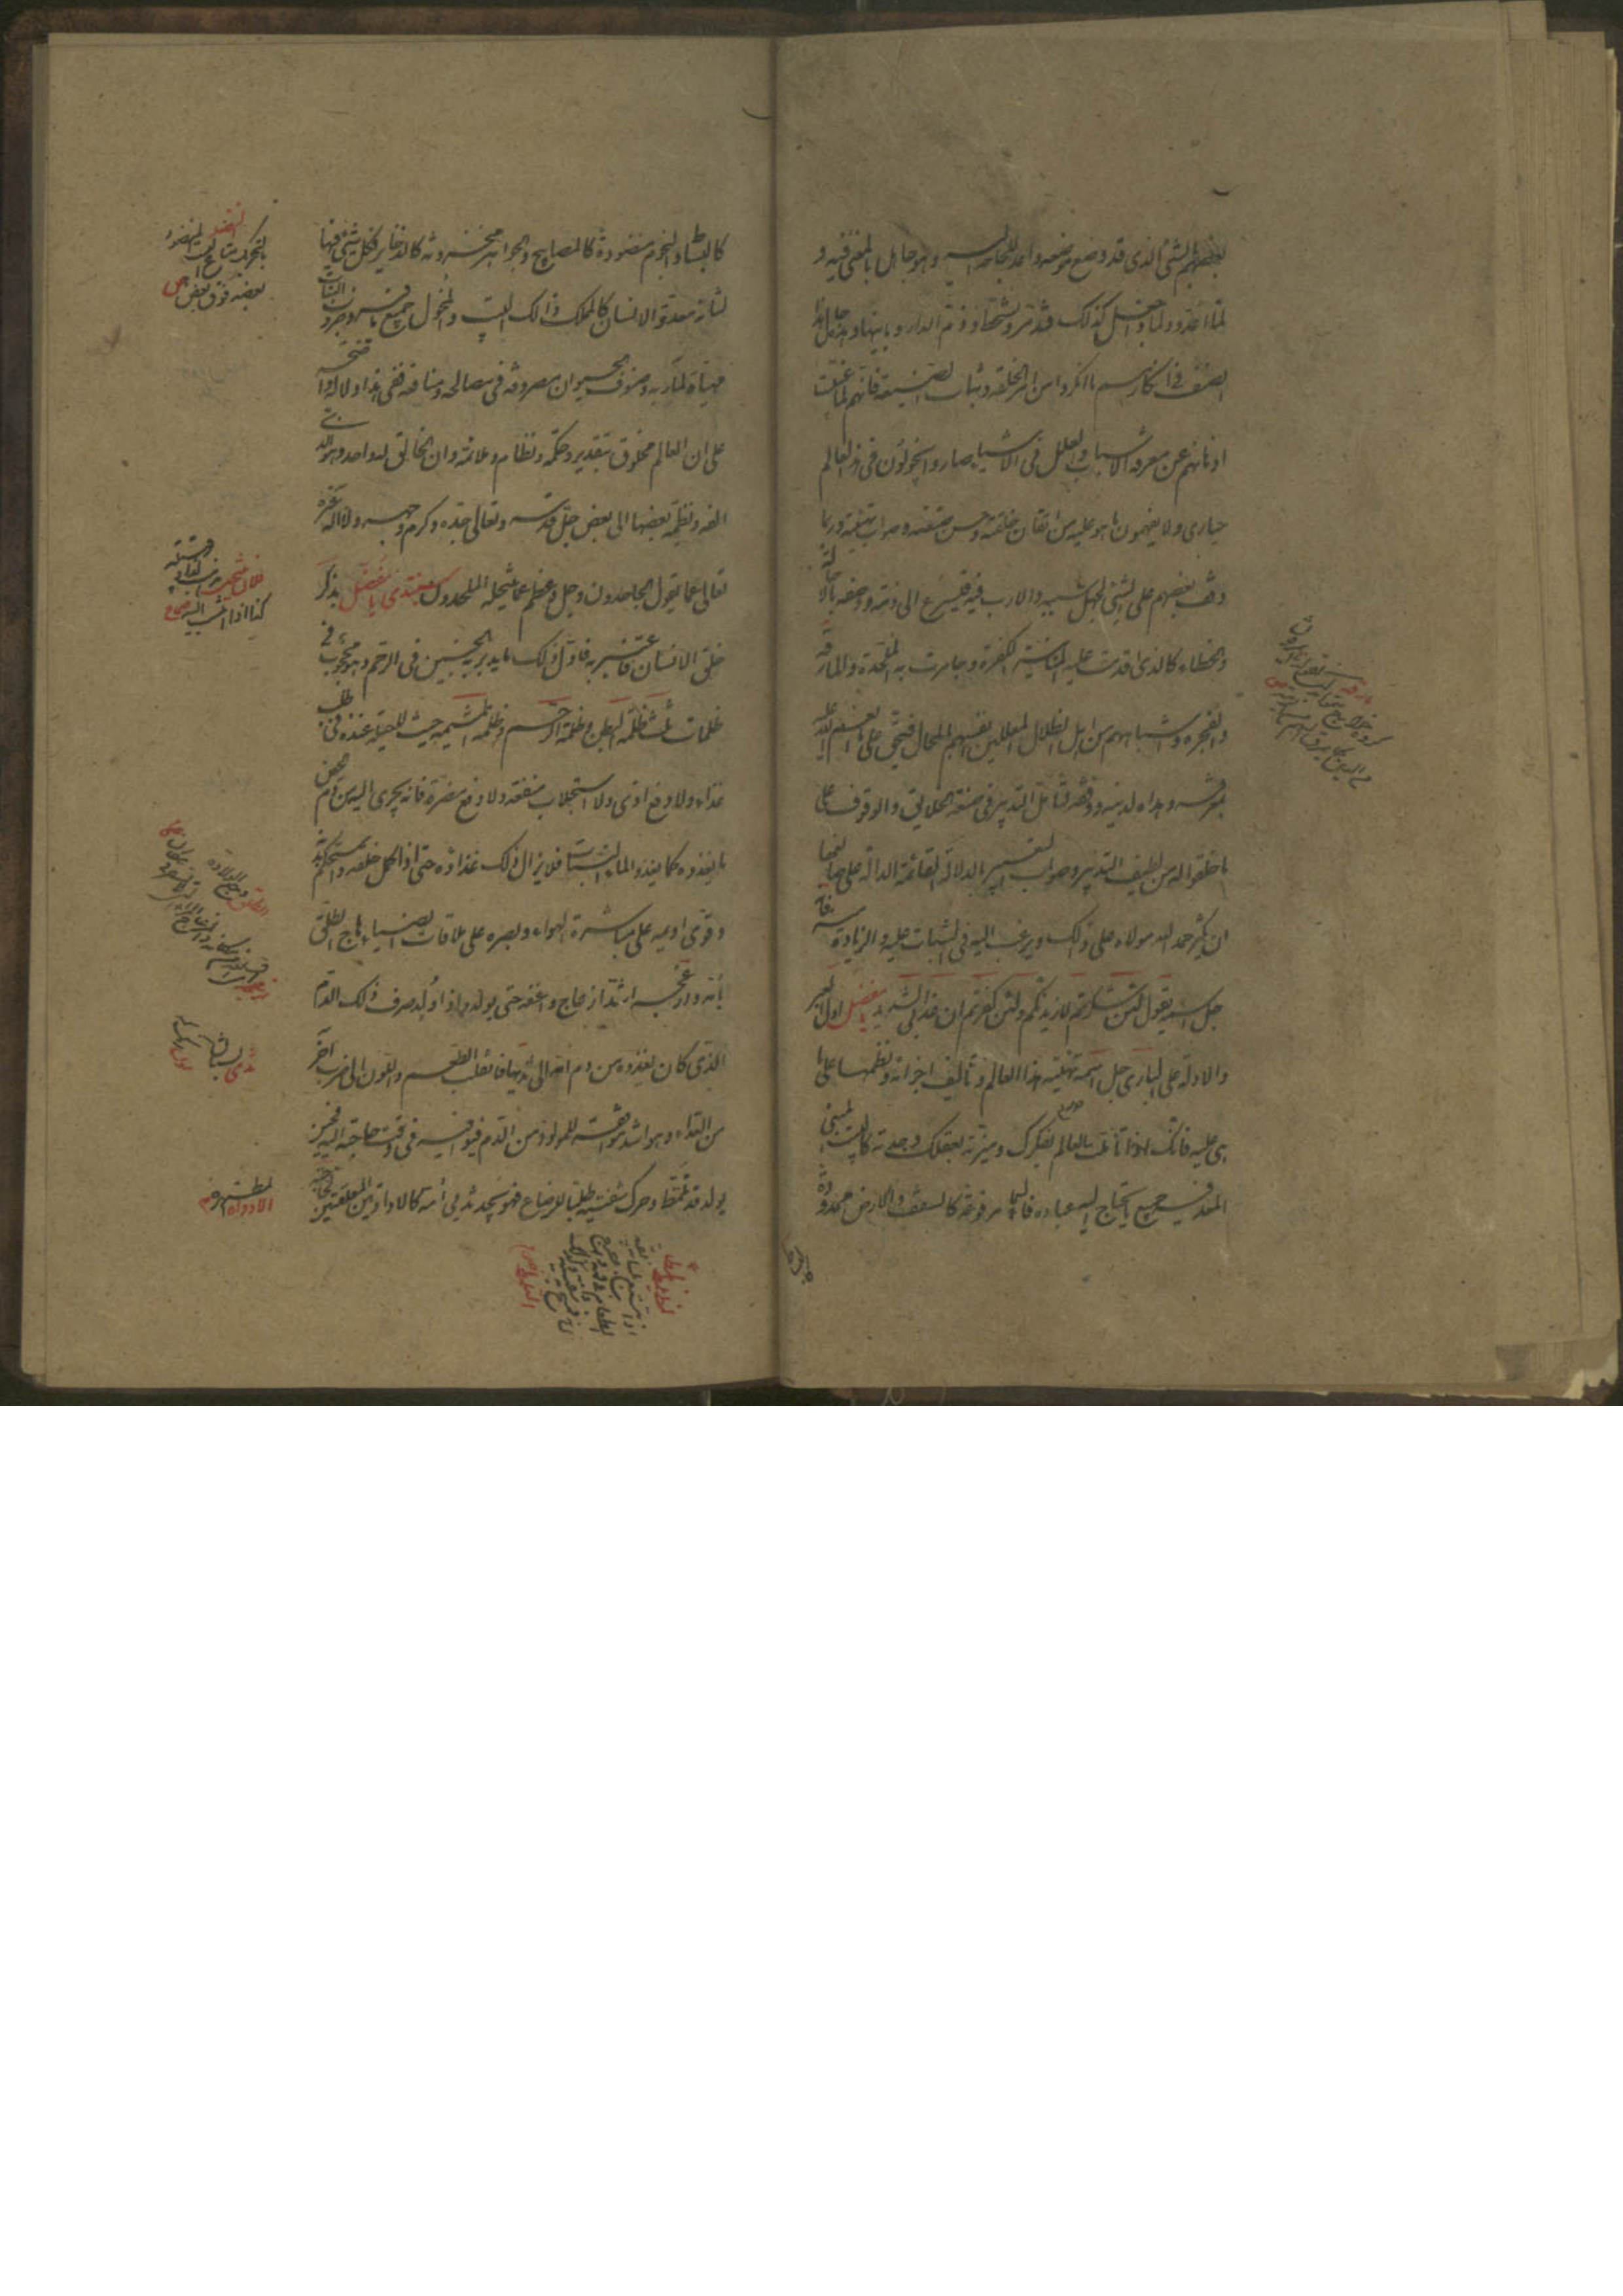 بعضهم بالشئ الذى قد وضع موضعه واعد للحاجة اليه وهو جاهل بالمعنى فيه و
لما اعد ولماذا جعل كذلك فتذمر وتسخط وذم الدار وبانيها فهذه حال هذا
الصنف فى انكارهم ما انكروا من امر الخلقة وثبات الصنعة فانهم لما غربت
اذهانهم عن معرفة الاسباب والعلل فى الاشياء صاروا يجولون فى هذا العالم
حيارى ولا يفهمون ما هو عليه من اتقان خلقته وحسن صنعته وصواب تهيئته وربما
وقف بعضهم على الشئ لجهل سببه والارب فيه فيسرع الى ذمه ووصفه بالاحالة
والخطاء كالذى اقدمت عليه المنانية الكفرة وجاهرت به الملحدة المارقة
الفجرة واشباههم من اهل الضلال المعللين انفسهم بالمحال فيحق على من انعم الله عليه
بمعرفته وهداه لدينه ووفقه لتأمل التدبير فى صنعة الخلايق والوقوف على
ما خلقوا له من لطيف التدبير وصواب التعبير بالدلالة القائمة الدالة على صانعها
ان يكثر حمد الله مولاه على ذلك ويرغب اليه فى الثبات عليه والزيادة منه فانه
جل اسمه يقول لئن شكرتم لازيدنكم ولئن كفرتم ان عذابى لشديد يا مفضل اول العبر
والادلة على البارى جل اسمه تهيئة هذا العالم وتأليف اجزائه ونظمها على ما
هى عليه فانك اذا تأملت العالم بفكرك وميزته بعقلك وجدته كالبيت المبنى
المعد فيه جميع ما يحتاج اليه عباده فالسماء مرفوعة كالسقف والارض ممدودة
كالبساط والنجوم منضودة كالمصابيح والجواهر مخزونة كالذخاير وكل شئ فيها
لشأنه معد والانسان كالمملك ذلك البيت والمخول جميع ما فيه وضروب النبات
مهيأة لمآربه وصنوف الحيوان مصروفة فى مصالحه ومنافعه ففى هذا دلالة واضحة
على ان العالم مخلوق بتقدير وحكمة ونظام وملائمة وان الخالق له واحد وهو الذى
الفه ونظمه بعضها الى بعض جل قدسه وتعالى جده وكرم وجهه ولا اله غيره
تعالى عما يقول الجاحدون وجل وعظم عما ينتحله الملحدون نبتدئ يا مفضل بذكر
خلق الانسان فاعتبر به فاول ذلك ما يدبر به الجنين فى الرحم وهو محجوب فى
ظلمات ثلث ظلمة البطن وظلمة الرحم وظلمة المشيمة حيث لا حيلة عنده فى طلب
غذاء ولا دفع اذى ولا استجلاب منفعة ولا دفع مضرة فانه يجرى اليه من دم الحيض
ما يغذوه كما يغذو الماء النبات فلا يزال ذلك غذاؤه حتى اذا كمل خلقه واستحكم بدنه
وقوى اديمه على مباشرة الهواء وبصره على ملاقات الضياء هاج الطلق
بامه وازعجه اشد ازعاج واعنفه حتى يولد واذا ولد صرف ذلك الدم
الذى كان يغذوه من دم امه الى ثدييها فانقلب الطعم واللون الى ضرب آخر
من الغذاء وهو اشد موافقة للمولود من الدم فيوافيه فى وقت حاجته اليه فحين
يولد قد تلمظ وحرك شفتيه طلبا للرضاع فهو يجد ثديى امه كالاداوتين المعلقتين لحاجته
النضد
بالتحريك متاع البيت المنضود
بعضه فوق بعض ص